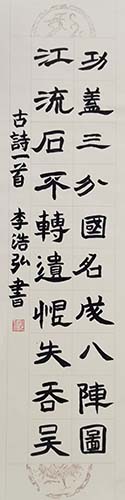 功蓋三分國名成八陣圖
江流石不轉遺恨失吞吴
古詩一首 李浩弘書